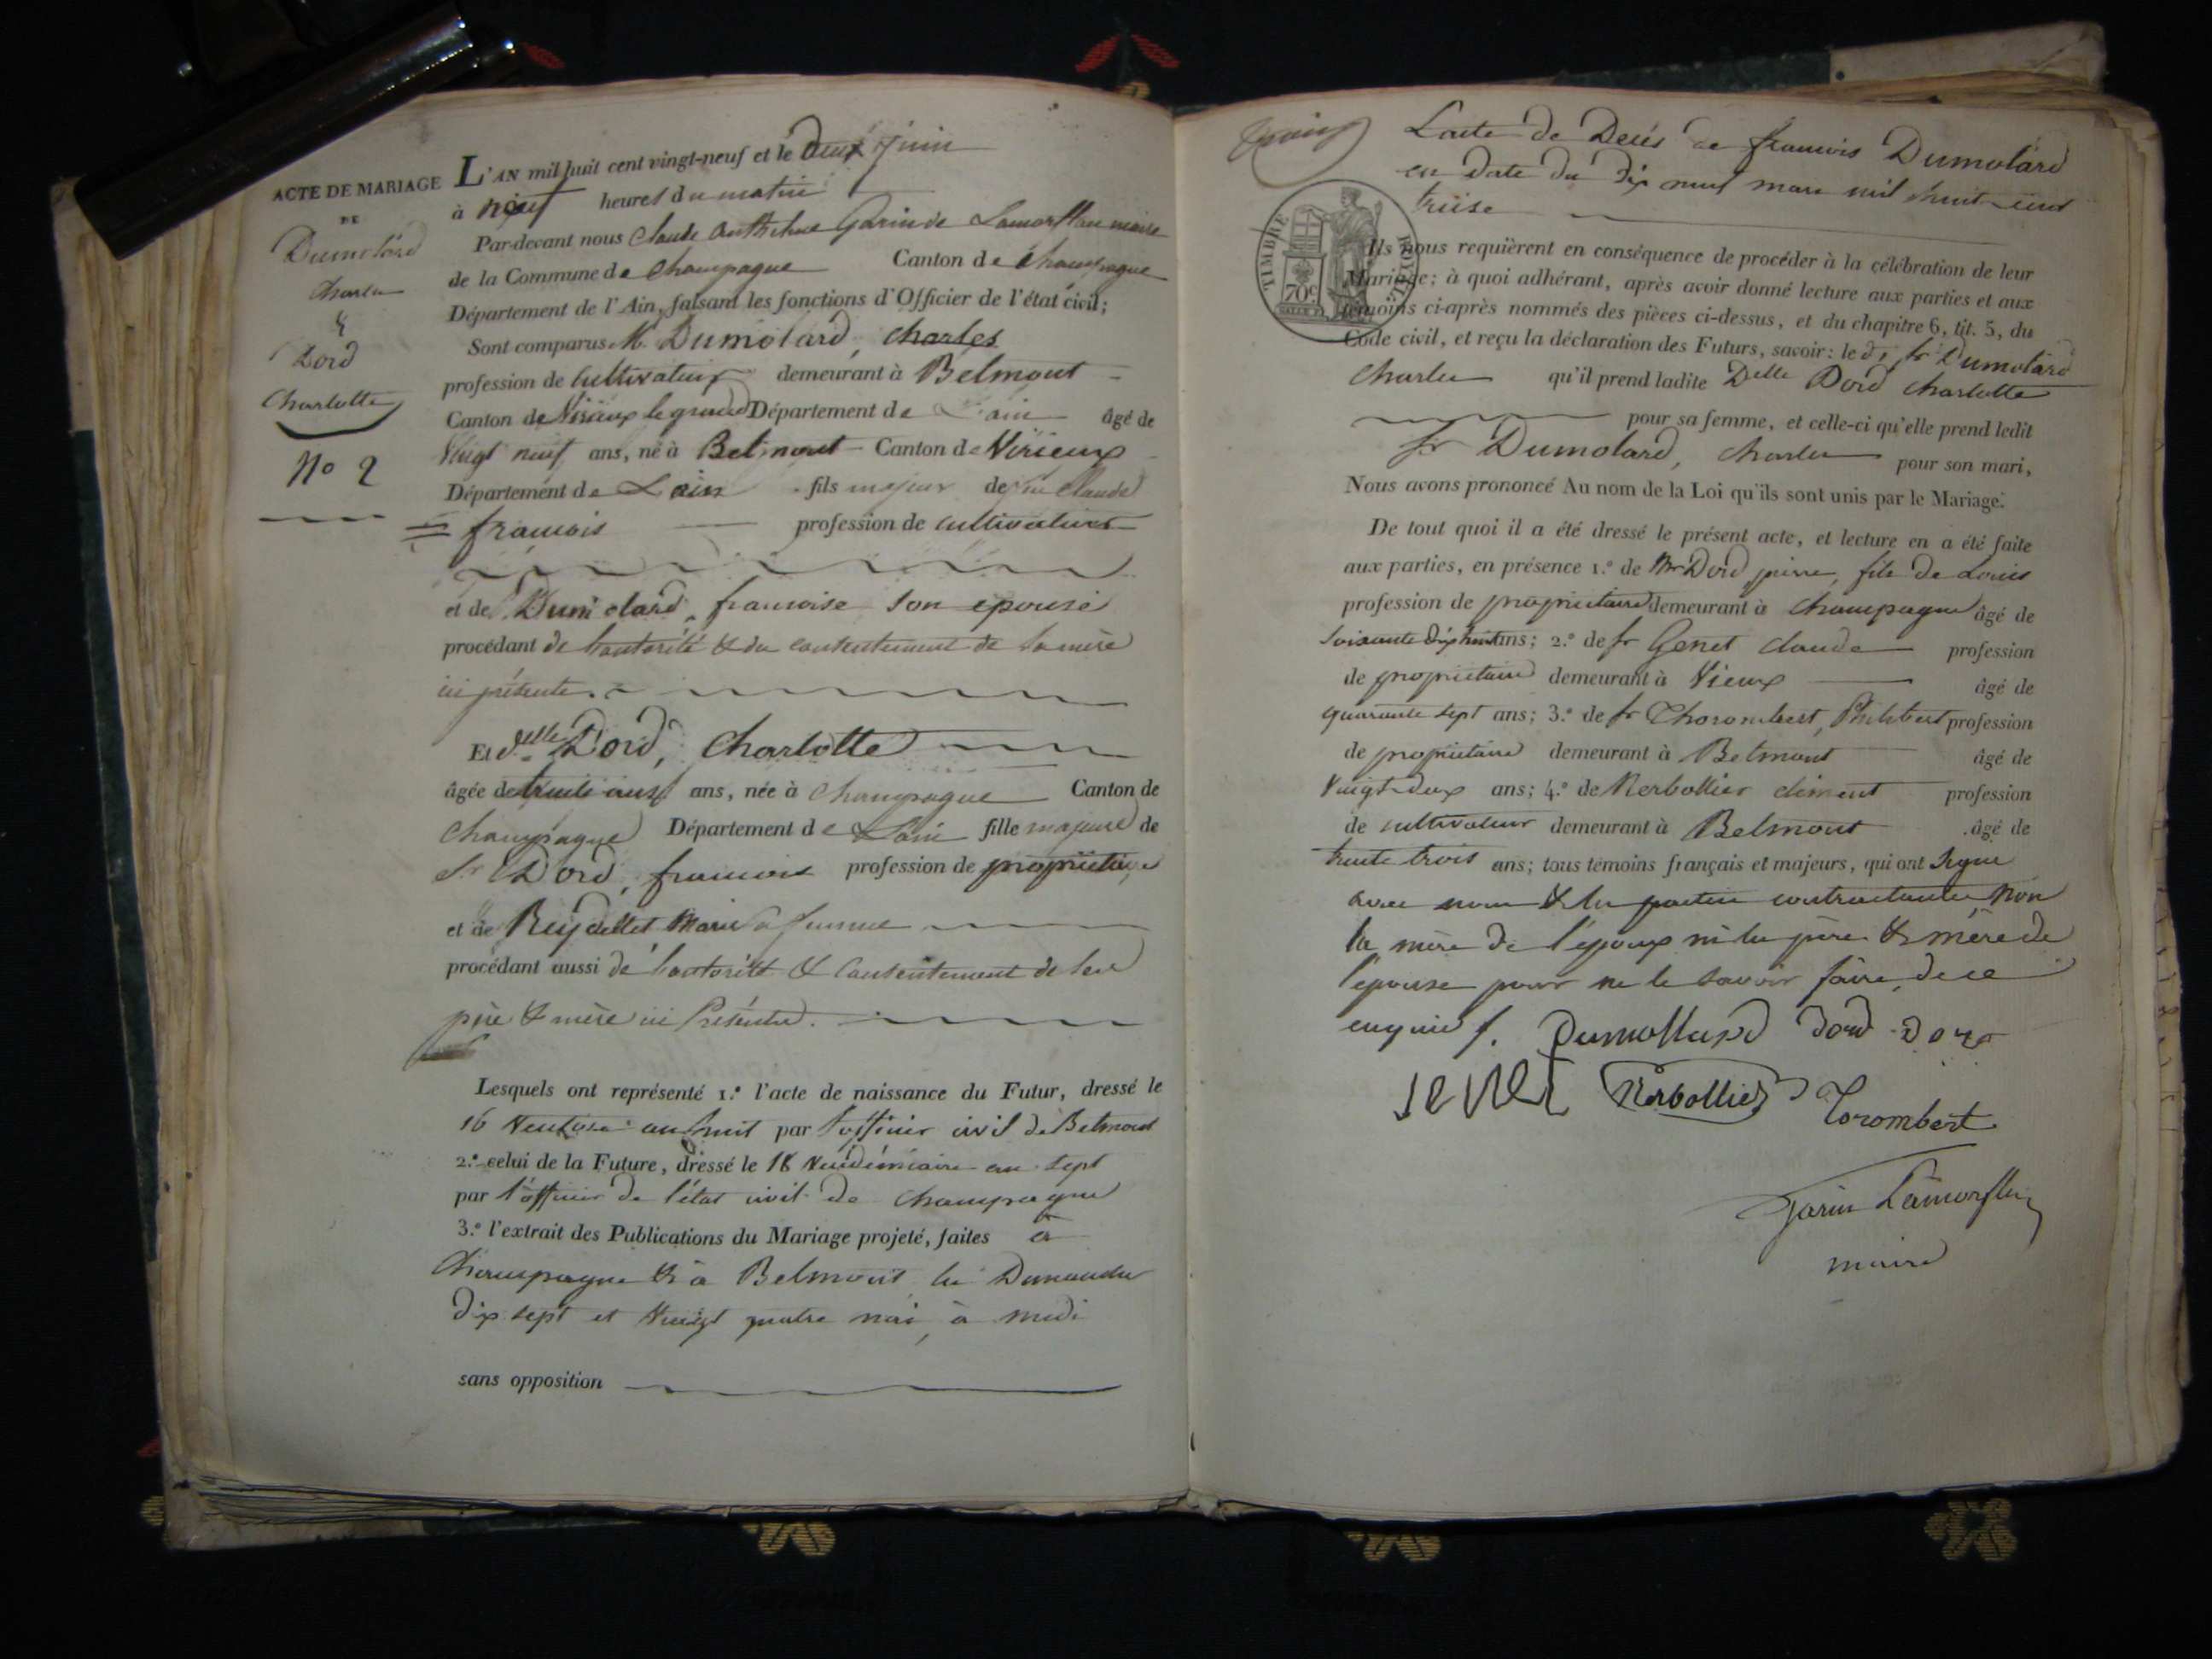 ACTE DE MARIAGE
DE
Dumolard
Charles
&
Dord
Charlotte
N° 2
L'AN mil huit cent vingt-neuf et le deux juin
à neuf heures du matin
Par-devant nous Claude Anthelme Garin de Lamorflan maire
de la Commune de Champagne Canton de Champagne
Département de l'Ain, faisant les fonctions d'Officier de l'état civil;
Sont comparus M. Dumolard, Charles
profession de Cultivateur demeurant à Belmont
Canton de Virieux le grand Département de l'ain âgé de
Vingt neuf ans, né à Belmont Canton de Virieux
Département de L'ain fils majeur de feu Claude
= francois profession de cultivateur
et de Dumolard, francoise son epouse
procédant de l'autorité & du consentement de sa mère
ici présente.
Et d.elle Dord, Charlotte
âgée de trente ans ans, née à Champagne Canton de
Champagne Département de L'ain fille majeure de
Sr Dord, francois profession de propriétaire
et de Reydellet Marie sa femme
procédant aussi de l'autorité & Consentement de ses
père & mère ici Présents.
Lesquels ont représenté 1.° l'acte de naissance du Futur, dressé le
16 Ventose an huit par l'officier civil de Belmont
2.° celui de la Future, dressé le 18 Vendémiaire an sept
par l'officier de l'état civil de Champagne
3.° l'extrait des Publications du Mariage projeté, faites à
Champagne & à Belmont les Dimanches
dix sept et Vingt quatre mai, à midi
sans opposition
L'acte de Décés de francois Dumolard
en date du dix neuf mars mil huit cent
treise
TIMBRE ROYAL
70c
Ils nous requièrent en conséquence de procéder à la célébration de leur
Mariage; à quoi adhérant, après avoir donné lecture aux parties et aux
témoins ci-après nommés des pièces ci-dessus, et du chapitre 6, tit. 5, du
Code civil, et reçu la déclaration des Futurs, savoir: le dt Sr Dumolard
Charles qu'il prend ladite Delle Dord Charlotte
pour sa femme, et celle-ci qu'elle prend ledit
Sr Dumolard, Charles pour son mari,
Nous avons prononcé Au nom de la Loi qu'ils sont unis par le Mariage.
De tout quoi il a été dressé le présent acte, et lecture en a été faite
aux parties, en présence 1.° de Mr Dord pierre, fils de Louis
profession de propriétaire demeurant à Champagne âgé de
soixante dix huit ans; 2.° de Sr Genet claude profession
de propriétaire demeurant à Vieux âgé de
quarante sept ans; 3.° de Sr Thorombert, Philibert profession
de propriétaire demeurant à Belmont âgé de
Vingt-deux ans; 4.° de Nerbollier clément profession
de cultivateur demeurant à Belmont âgé de
trente trois ans; tous témoins français et majeurs, qui ont signé
avec nous & les parties contractantes non
la mère de l'époux ni les père & mère de
l'épouse pour ne le savoir faire, de ce
enquis f. Dumollard Dord Dord
JENET Nerbollier Torombert
Garin Lamorflan
maire